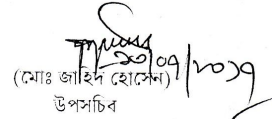 ২৩/০৭/২০১৭
(মোঃ জাহিদ হোসেন)
উপসচিব